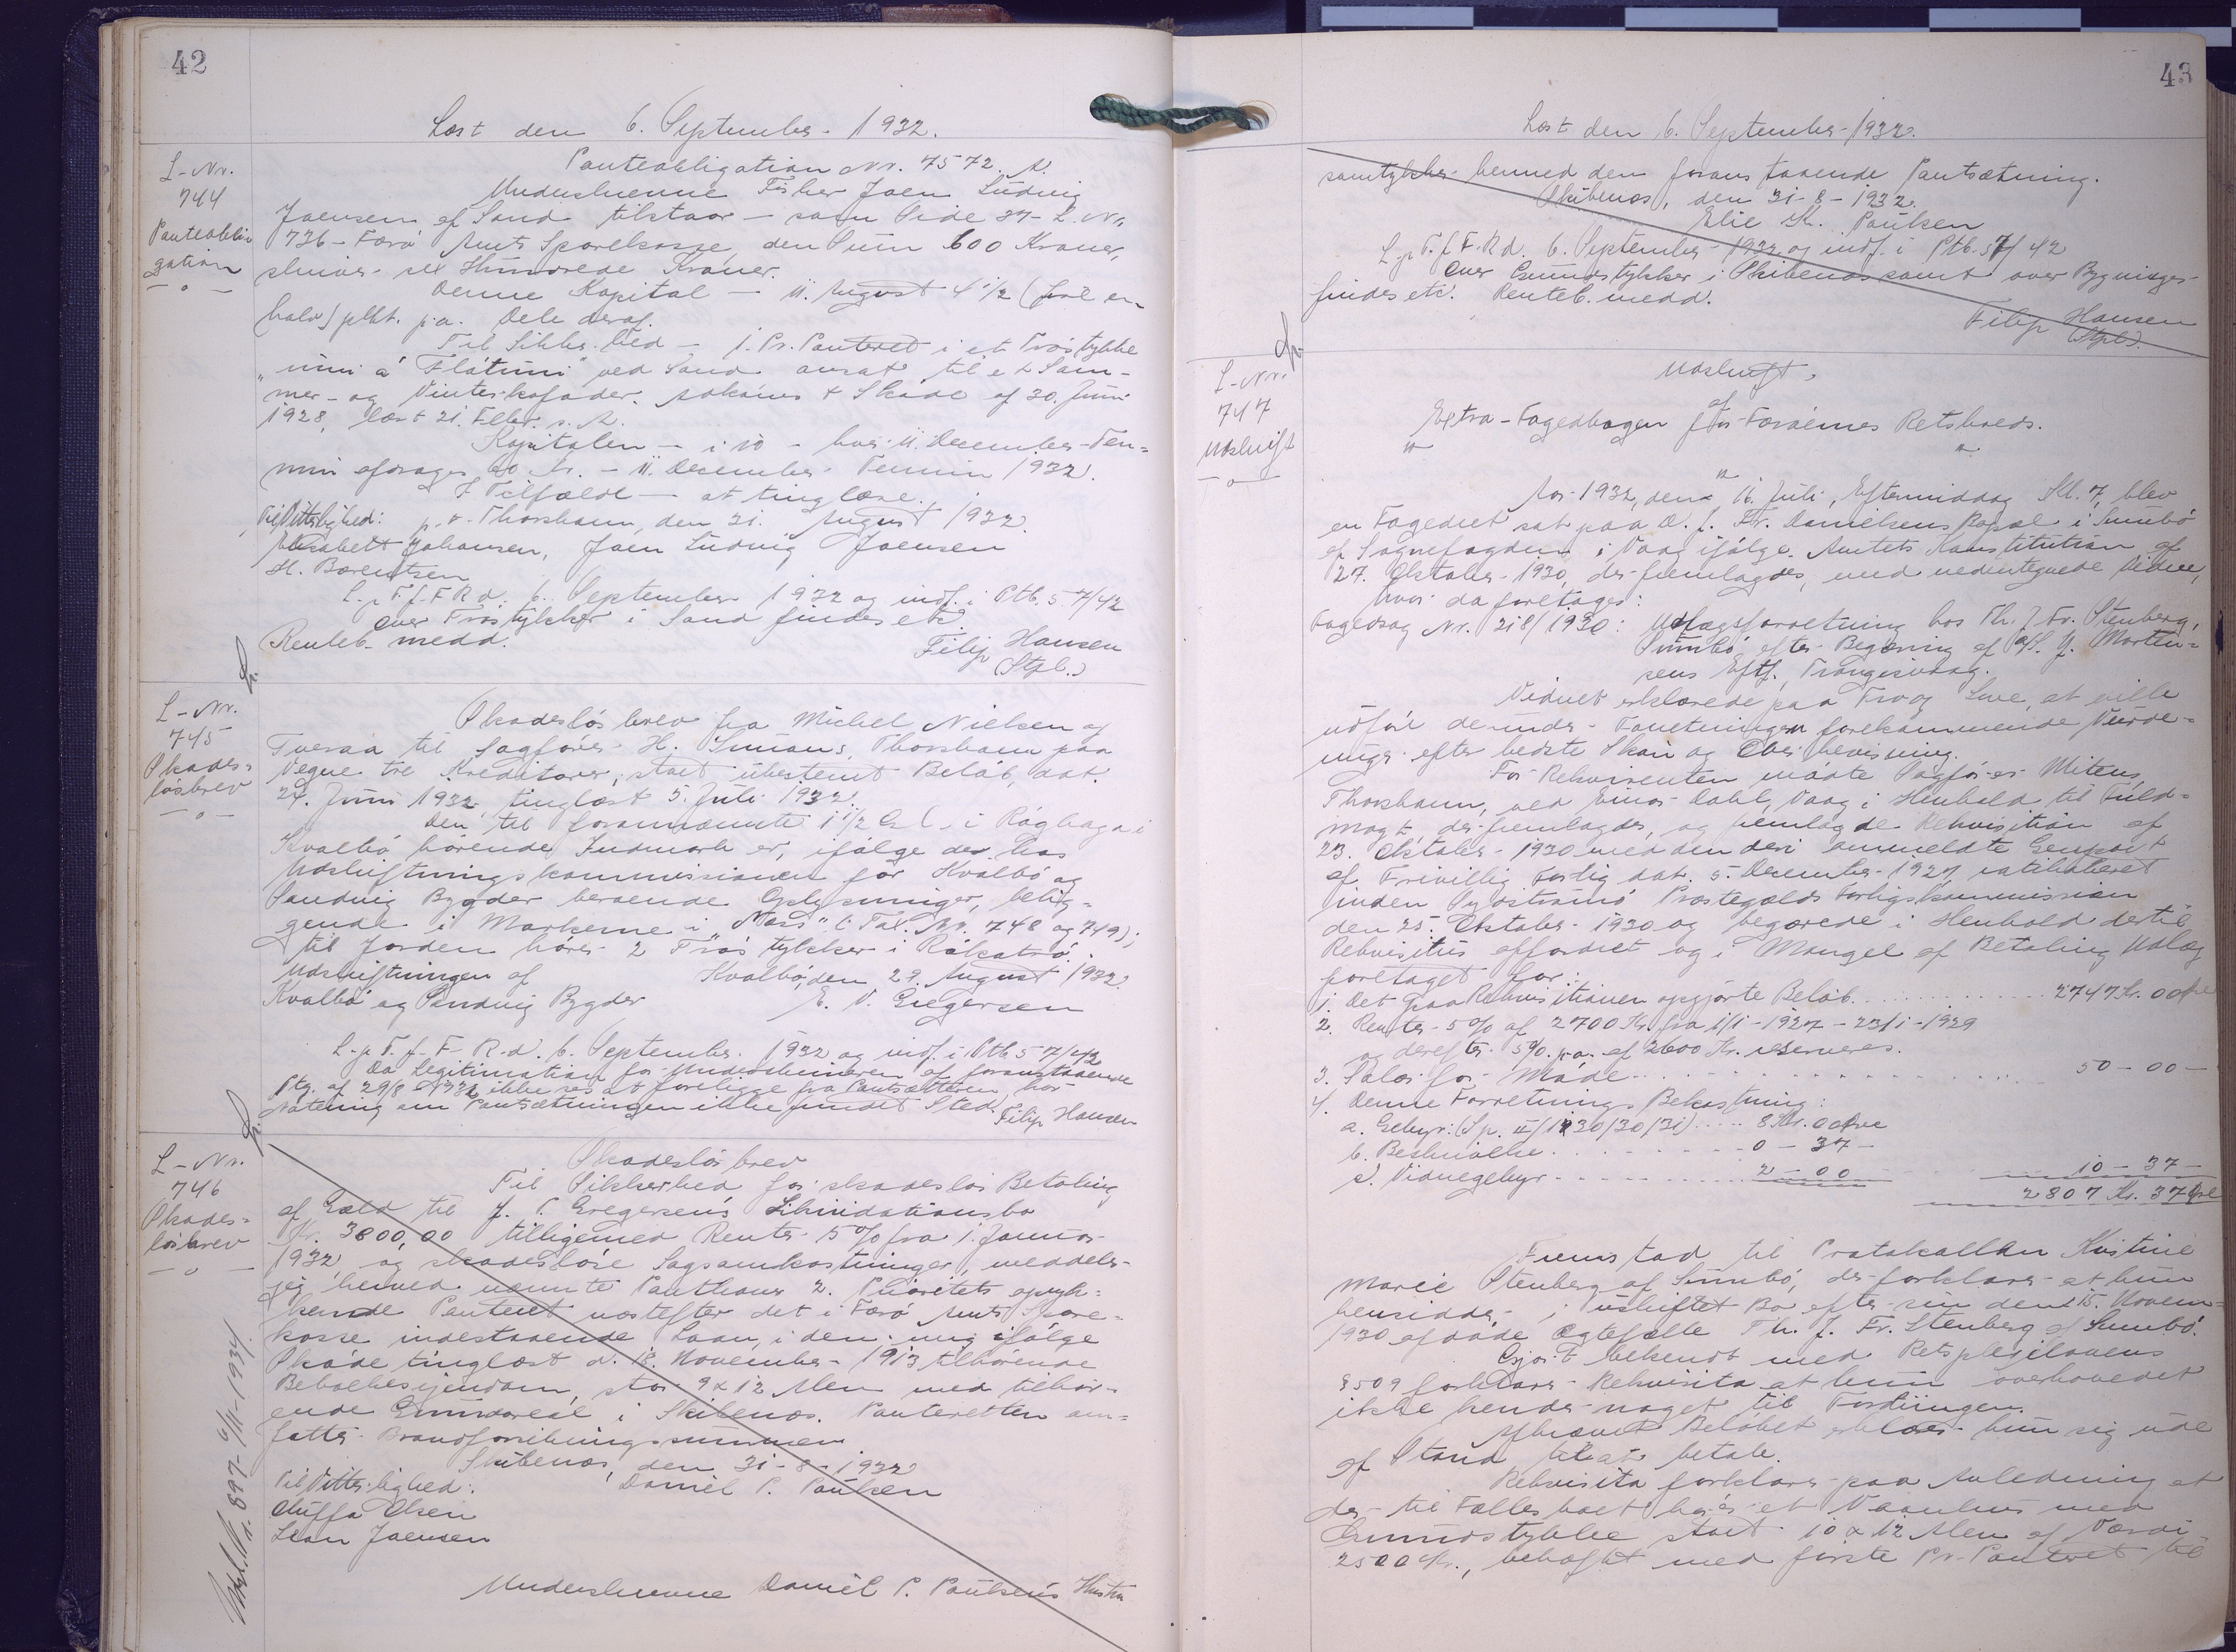 42
Læst den 6. September 1932.
L-Nr.
744
Panteobli-
gation
Panteobligation Nr. 7572. A.
Underskrevne Fisker Joen Ludvig
Joensen af Sand tilstaar – som Side 37 – L. Nr.
736 – Færø Amts Sparekasse, den Sum 600 Kroner,
skriver sex Hundrede Kroner.
Denne Kapital – 11. August 4 1/2 (fire en
halv) pCt. p.a. Dele deraf.
Til Sikkerhed – 1. Pr. Panteret i et Træstykke
"inni á Flátinni" ved Sand ansat til et Som-
mer- og Vinterkofoder. adkoms t Skøde af 30. Juni
1928, læst 21. Febr. s. A.
Kapitalen – i 10 – hver 11. December Ter-
min afdrages 60 Kr. – 11. December Termin 1932.
I Tilfælde – at tinglæse.
Til Vitterlighed: p. t. Thorshavn, den 31. August 1932.
Elisabeth Johansen, Joen Ludvig Joensen
H. Berentsen
L. p. T. f. F. R d. 6. September 1932 og indf. i Ptb. 57/42
Over Træstykker i Sand findes etc.
Renteb. medd. Filip Hansen
(Stpl.)
L-Nr.
745
Skades-
løsbrev
Skadesløsbrev fra Michel Nielsen af
Tveraa til Sagfører H. Simans Thorshavn paa
Vegne tre Kreditorer, stort ubestemt Beløb, dat.
24. Juni 1932 tinglæst 5. Juli 1932.
Den til forannævnte 1 1/2 Gl. i Røghaga i
Kvalbø hørende Indmark er, ifølge der hos
Udskiftningskommissionen for Kvalbø og
Sandvig Bygder beroende Oplysninger, belig-
gende i Markerne i "Nørs" (: Tax. Nr. 748 og 749);
til Jorden hører 2 Træstykker i Rákatrø.
Udskiftningen af Kvalbø, den 29. August 1932.
Kvalbø og Sandvig Bygder E. V. Gregersen
L. p. T. f. F. R. d. 6. September 1932 og indf. i Ptb 57/42
Da Legitimation for Underskriveren af foranstaaende
Ptg. af 29/8 1932 ikke ses at foreligge fra Pantsætteren har
Notering om Pantsætningen ikke fundet Sted. Filip Hansen
L-Nr.
746
Skades-
løsbrev
Skadesløsbrev
Til Sikkerhed for skadesløs Betaling
af Gæld til J. P. Gregersen's Likvidationsbo
Kr. 3800,00 tilligemed Renter 5% fra 1. Januar
1932 og skadesløse Sagsomkostninger, meddeler
jeg herved nævnte Panthaver 2. Prioritets opryk-
kende Panteret næstefter det i Færø Amts Spare-
kasse indestaaende Laan, i den mig ifølge
Skøde tinglæst d. 18. November 1913 tilhørende
Beboelsesejendom, stor 9 x 12 Alen med tilhør-
ende Grundareal i Skibenæs. Panteretten om-
fatter Brandforsikringssummen
Skibenæs, den 31-8-1932
Til Vitterlighed: Daniel P. Paulsen
Oluffa Olsen
Leon Joensen
Underskrevne Daniel P. Paulsen's Hustru
Udsl. L. Nr. 897- 6/11-1934.
43
Læst den 6. September 1932.
samtykker herved den foranstaaende Pantsætning.
Skibenæs, den 31-8-1932.
Elie K. Paulsen
L. p. T. f. F. R d. 6. September 1932 og indf. i Ptb. 57/42
Over Grundstykker i Skibenæs samt over Bygninger
findes etc. Renteb. medd.
Filip Hansen
(Stpl.).
L-Nr.
747
Udskrift
Udskrift
af
Extra-Fogedbogen for Færøernes Retskreds.
Aar 1932, den 16. Juli, Eftermiddag Kl. 7, blev
en Fogedret sat paa D. J. Fr. Danielsens Bopæl i Sumbø
af Sognefogden i Vaag ifølge Amtets Konstitution af
27. Oktober 1930, der fremlagdes, med nedentegnede Vidne,
hvor da foretages:
Fogedsag Nr. 218/1930: Udlægsforretning hos Th. J. Fr. Stenberg,
Sumbø, efter Begæring af A/S. J. Morten-
sens Eftf., Trangisvaag.
Vidnet erklærede paa Tro og Love, at ville
udføre de under Forretningen forekommende Vurde-
ringer efter bedste Skøn og Overbevisning.
For Rekvirenten mødte Sagfører Mitens,
Thorshavn, ved Einar Dahl, Vaag i Henhold til Fuld-
magt, der fremlagdes, og fremlagde Rekvisition af
23. Oktober 1930 med den deri anmeldte Genpart
af Frivillig Forlig dat. 5. December 1927, ratihaberet
inden Syd Strømø Præstegælds Forligskommission
den 25. Oktober 1930 og begærede i Henhold dertil
Rekvisitus opfordret og i Mangel af Betaling Udlæg
foretaget for:
1. Det paa Rekvisitionen opgjorte Beløb. 2747 Kr. 00 Øre
2. Renter 5% af 2700 Kr. fra 1/1-1927 – 23/1-1929
og derefter 5% p.a. af 2600 Kr. reserveres.
3. Salær for Møde 50 – 00 –
4. Denne Forretnings Bekostning:
a. Gebyr: (Sp. II/1930/30/31) 8 Kr. 00 Øre
b. Beskrivelse 0 – 37 –
c. Vidnegebyr 2 – 00 10 – 37 –
2807 Kr. 37 Øre
Fremstod til Protokollen Kristine
Marie Stenberg af Sumbø, der forklarer at hun
hensidder i uskiftet Bo efter sin den 15. Novem-
1930 afdøde Ægtefælle Th. J. Fr. Stenberg af Sumbø.
Gjort bekendt med Retsplejelovens
§509 forklarer Rekvisita at hun overhovedet
ikke kender noget til Fordringen.
Afkrævet Beløbet erklærer hun sig ude
af Stand til at betale.
Rekvisita forklarer paa Anledning at
der til Fællesboet hører et Vaanhus med
Grundstykke stort 10 x 12 Alen af Værdi
2500 Kr., behæftet med første Pr. Panteret til